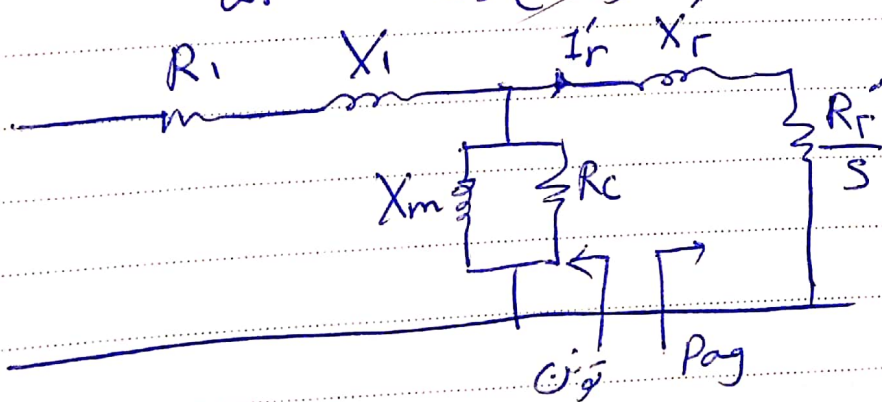 R₁ X₁ I'r X'r
R'r/S
Xm Rc
تونن Pag